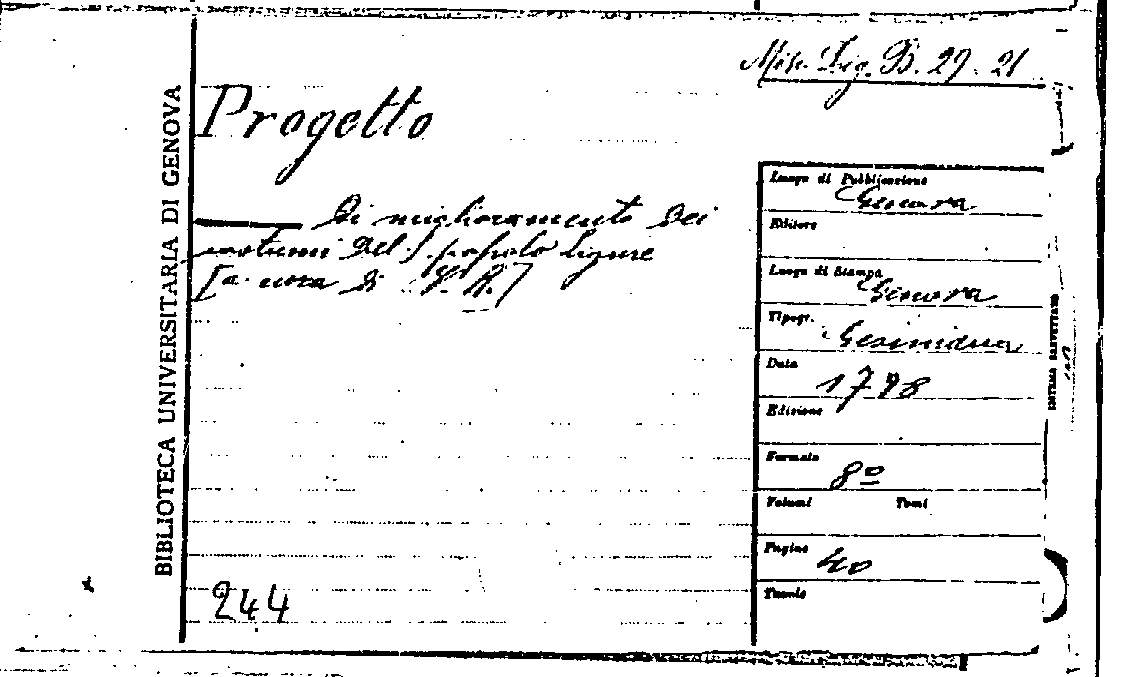 Misc. Lig. B. 29. 21
BIBLIOTECA UNIVERSITARIA DI GENOVA
Progetto
di miglioramento dei
costumi del popolo ligure
[a cura di V. R.]
244
Luogo di Pubblicazione
Genova
Editore
Luogo di Stampa
Genova
Tipogr.
Gesiniana
Data
1798
Edizione
Formato
8º
Volumi Tomi
Pagine
40
Tavole